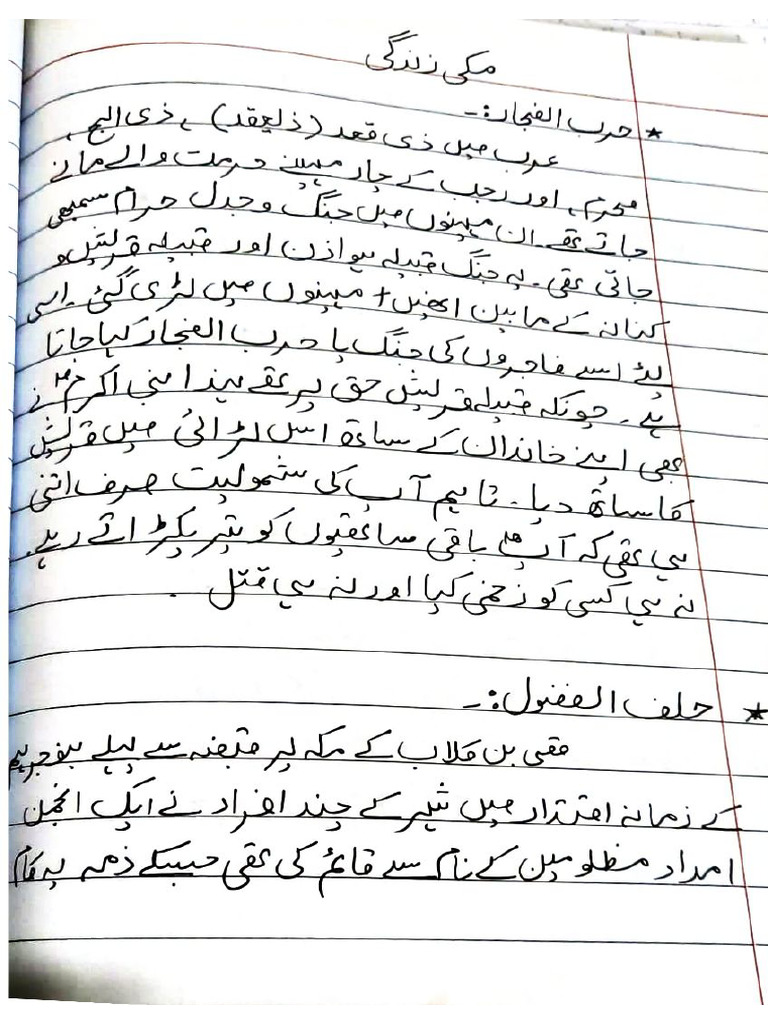 مکی زندگی
* حرب الفجار:-
عرب میں ذی قعد (ذلعقد) ، ذی الحج ،
محرم ، اور رجب کے چار مہینے حرمت والے مانے
جاتے تھے۔ ان مہینوں میں جنگ و جدل حرام سمجھی
جاتی تھی۔ یہ جنگ قبیلہ ہوازن اور قبیلہ قریش و
کنانہ کے مابین انھیں + مہینوں میں لڑی گئی۔ اسی
لئے اسے فاجروں کی جنگ یا حرب الفجار کہا جاتا
ہے۔ چونکہ قبیلہ قریش حق پر تھے لہذا نبی اکرمؐ نے
بھی اپنے خاندان کے ساتھ اس لڑائی میں قریش
کا ساتھ دیا۔ تاہم آپ کی شمولیت صرف اتنی
ہی تھی کہ آپؐ باقی ساتھیوں کو تیر پکڑاتے رہے۔
نہ ہی کسی کو زخمی کیا اور نہ ہی قتل ۔
* حلف الفضول:-
قصی بن کلاب کے مکہ پر قبضہ سے پہلے بنو جرہم
کے زمانہ اقتدار میں شہر کے چند افراد نے ایک انجمن
امداد مظلومین کے نام سے قائم کی تھی جسکے ذمہ یہ کام